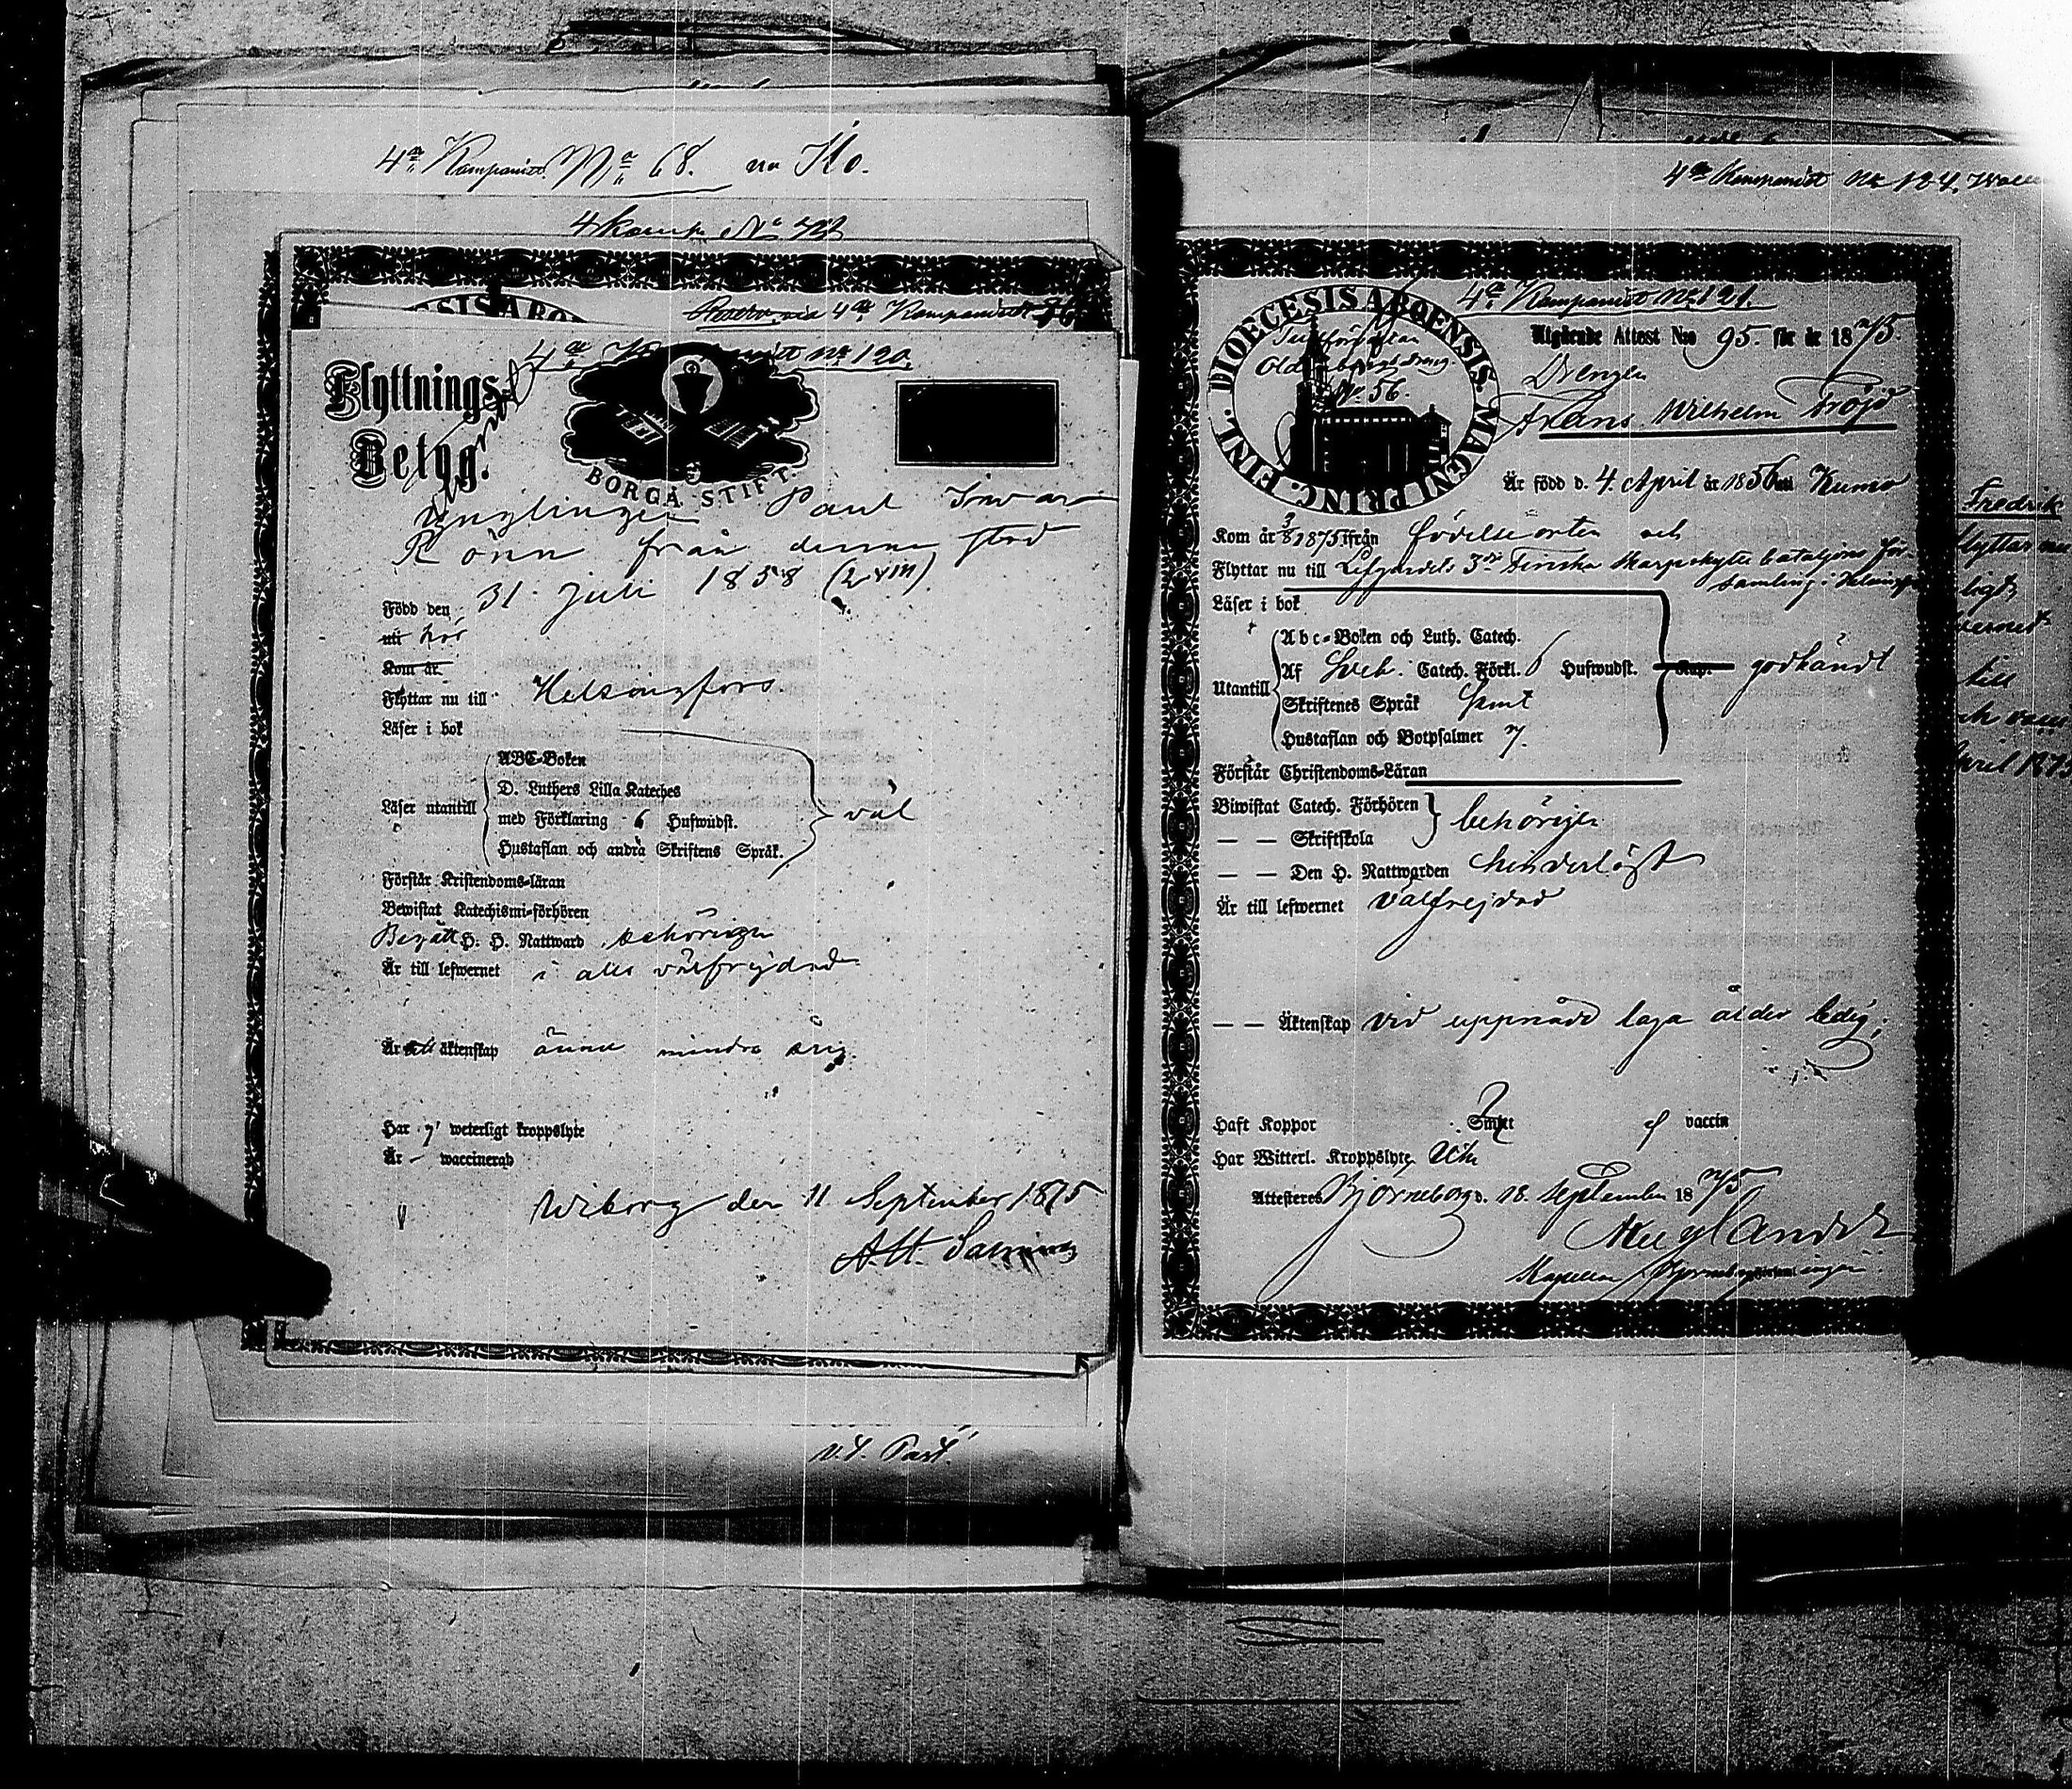 4de Kompaniet. No 68. na Ilo.
4 komp. No
4de Kompaniet
4de No 120.
Flyttnings-
Betyg.
BORGÅ STIFT.
Ynglingen Paul Invar
Rönn från denna stad
Född den 31 Juli 1858 (LVIII)
uti här
Kom år
Flyttar nu till Helsingfors.
Läser i bok
ABC-Boken
D. Luthers Lilla Kateches
Läser utantill med Förklaring 6 Hufwudst. väl
Hustaflan och andra Skriftens Språk.
Förstår Kristendoms-läran
Bewistat Katechismi-förhören
Begått H. H. Nattward behörigen
Är till lefwernet i allo välfrejdad
Är till äktenskap ännu mindre årig.
Har ej weterligt kroppslyte
Är — waccinerad
Wiborg den 11 September 1875
v. t. Past.
4de Kompaniet No 124.
DIOECESIS ABOENSIS MAGNI PRINC. FINL.
4de Kompaniet No 121.
No 56.
Utgående Attest N:o 95. för år 1875.
Drengen
Frans Wilhelm Fröjd
Är född d. 4 April år 1856 uti Kumo
Kom år 3/8 1875 ifrån födelseorten och
Flyttar nu till Lifgardets 3de Finska Skarpskytte bataljons för-
samling i Helsingfors
Läser i bok
Abc-Boken och Luth. Catech.
Utantill Af Sveb. Catech. Förkl. 6 Hufwudst. godkändt
Skriftenes Språk samt
Hustaflan och Botpsalmer 7.
Förstår Christendoms-Läran
Biwistat Catech. Förhören behörigen
— — Skriftskola
— — Den H. Nattwarden hinderlöst
Är till lefwernet välfrejdad
— — Äktenskap vid uppnådd laga ålder ledig.
Haft Koppor Smitt vaccin
Har Witterl. Kroppslyte
Attesteras Björneborg d. 18 September 1875
Fredrik
flyttar nu
ligt
vernet
till
April 187